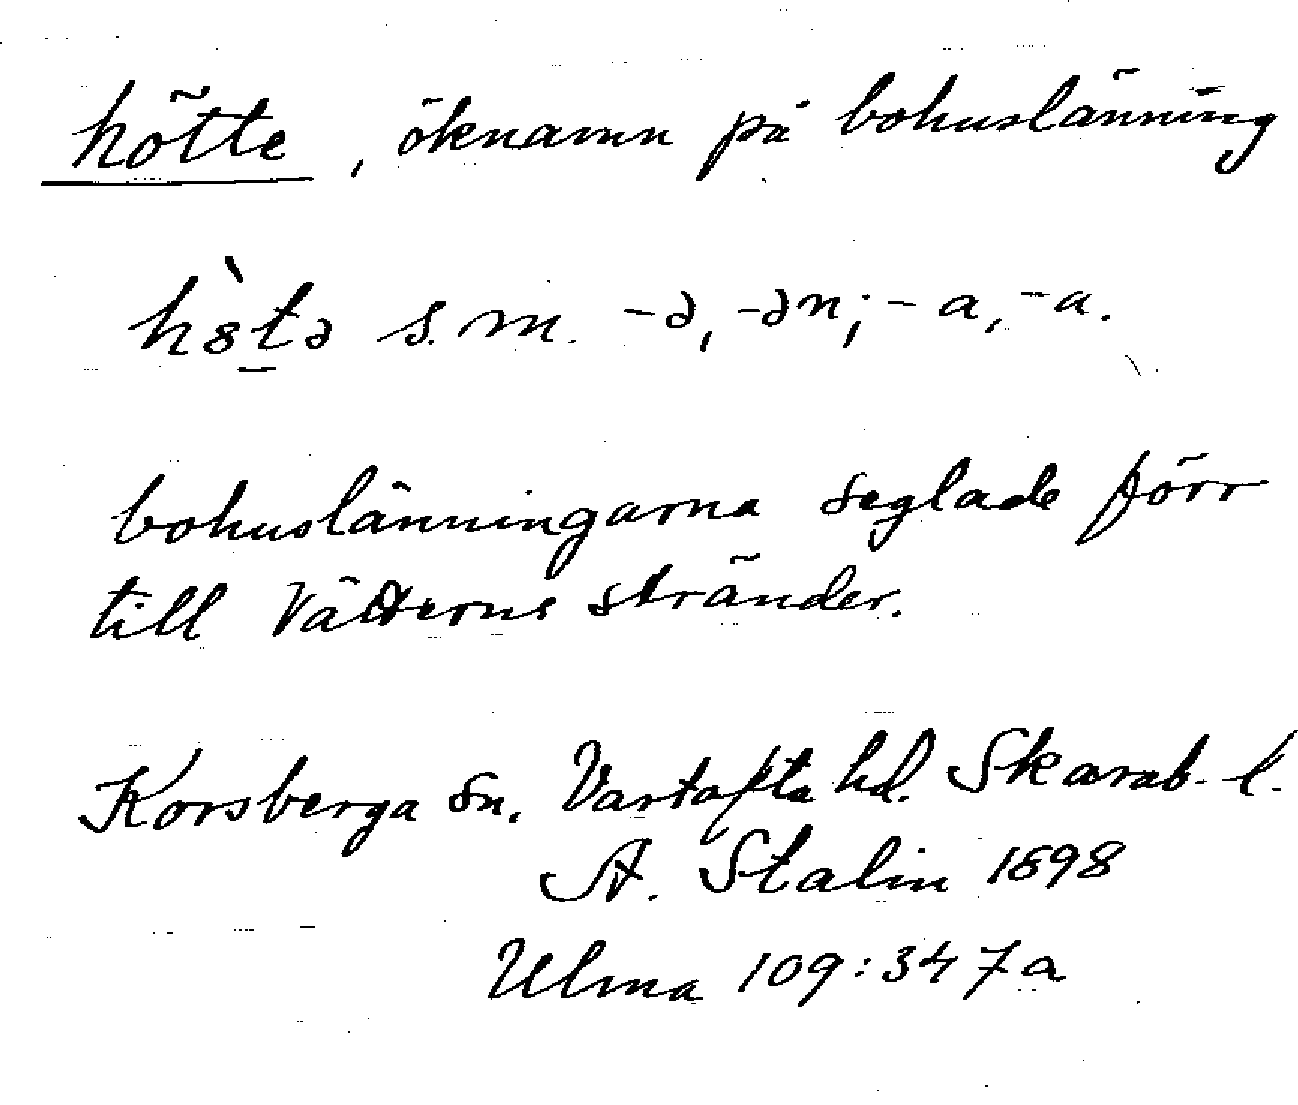 hötte, öknamn på bohuslänning
hò̈tə s.m. -ə, -ən; -a, -a.
bohuslänningarna seglade förr
till Vätterns stränder.
Korsberga sn. Vartofta hd. Skarab. l.
A. Stalin 1898
Ulma 109:347a